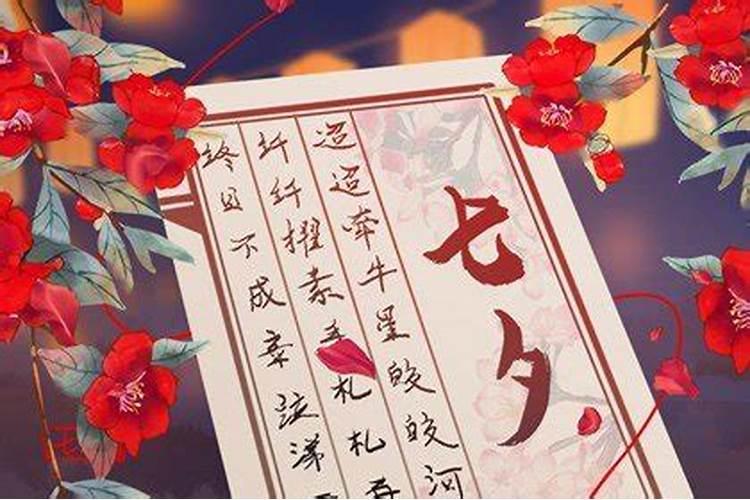 七夕
迢迢牵牛星皎皎河
纤纤擢素手札札
终日不成章泣涕